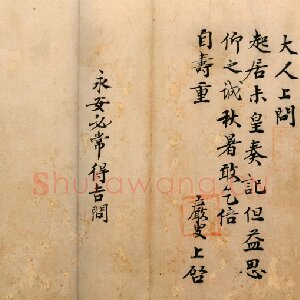 大人上問
起居未皇奏記但益思
仰之誠秋暑敢乞倍
自壽重
嚴叟上啓
永安必常得吉問
Shufawang